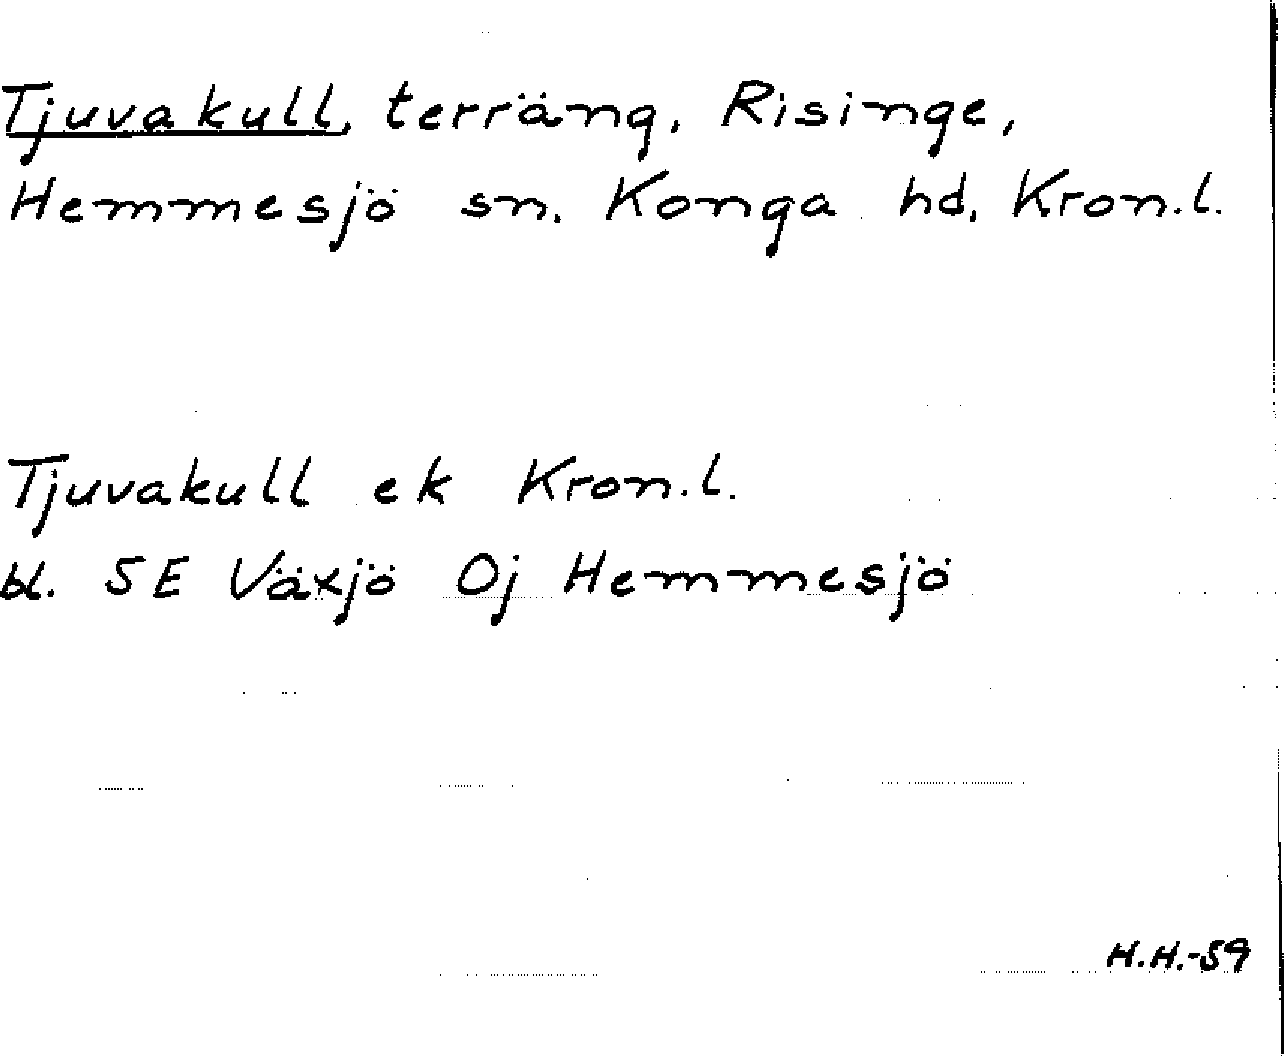 Tjuvakull, terräng, Risinge,
Hemmesjö sn. Konga hd, Kron.l.
Tjuvakull ek Kron.l.
bl. 5E Växjö Oj Hemmesjö
H.H.-59